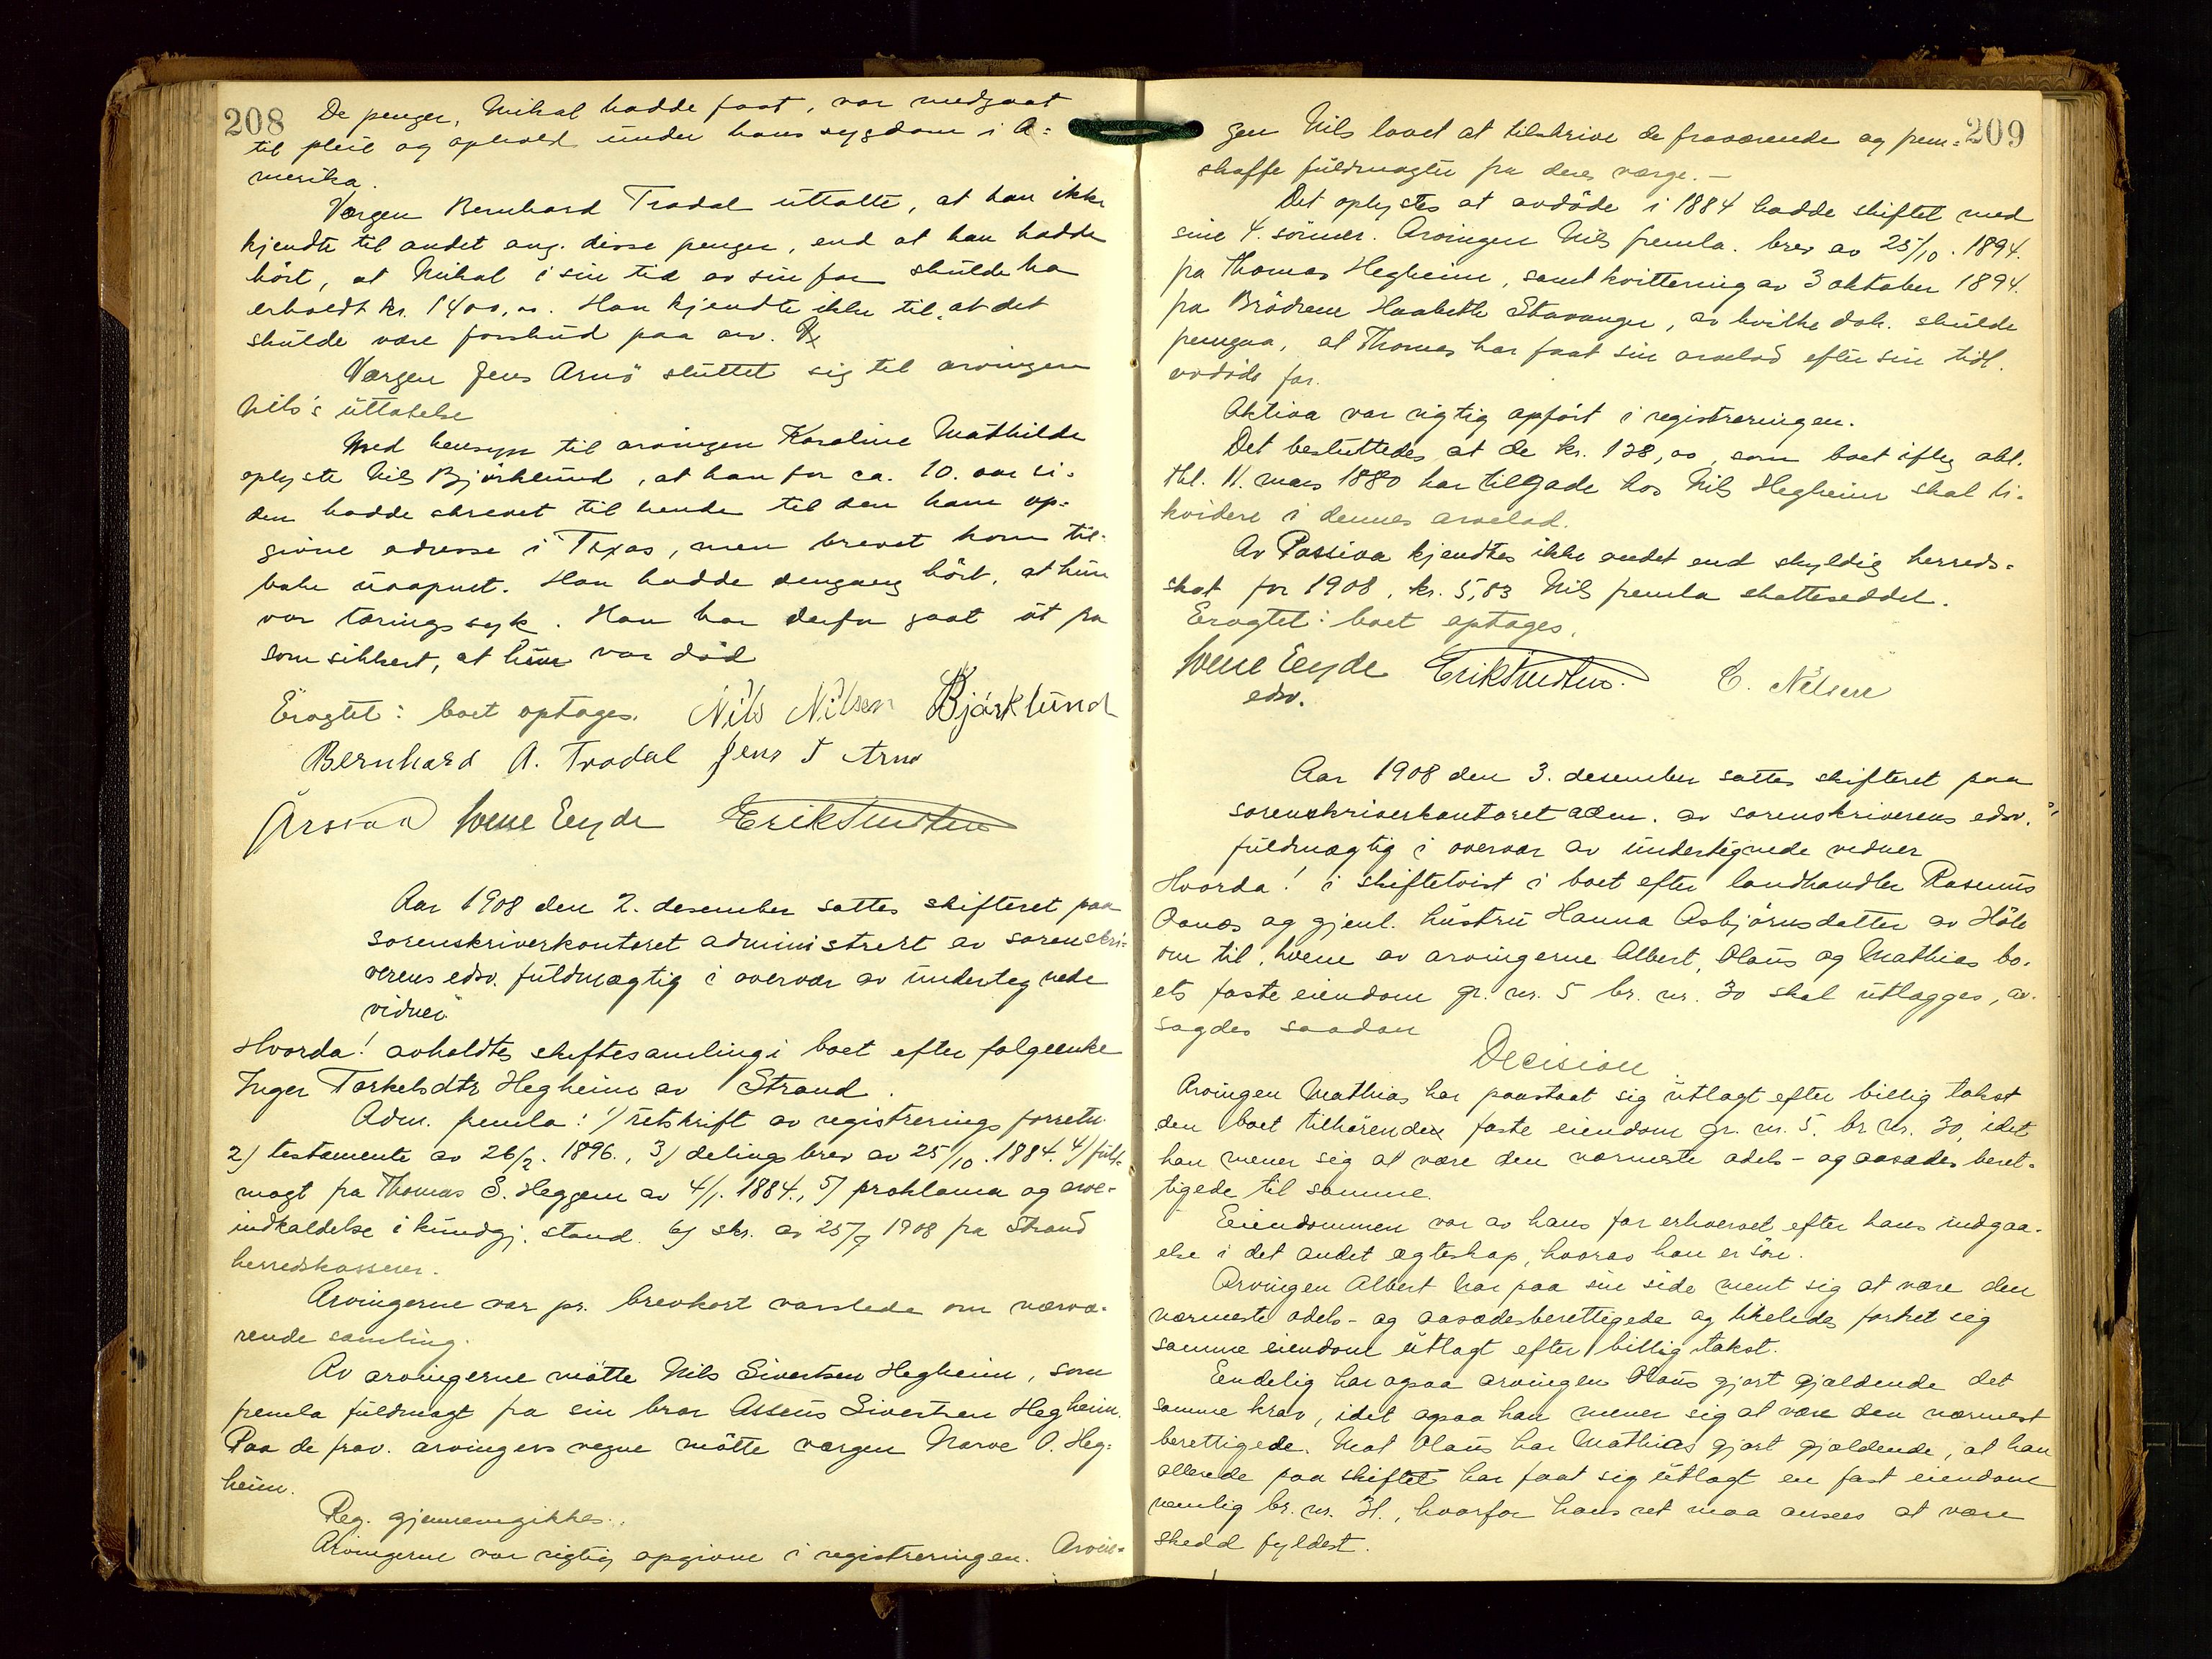 208
De penger, Mikal hadde faat, var medgaat
til pleie og ophold under hans sygdom i A=
merika.
Værgen Bernhard Tradal uttalte, at han ikke
kjendte til andet ang. disse penger, end at han hadde
hört, at Mikal i sin tid av sin far skulde ha
erholdt kr. 1400,00. Han kjendte ikke til, at det
skulde være forskud paa arv.
Værgen Jens Arnö sluttet sig til arvingen
Nils's uttalelse
Med hensyn til arvingen Karoline Mathilde
oplyste Nils Bjørklund, at han for ca. 10. aar si-
den hadde skrevet til hende til den ham op-
givne adresse i Texas, men brevet kom til-
bake uaapnet. Han hadde dengang hört, at hun
var tæringssyk. Han har derfor gaat ut fra
som sikkert, at hun var död
Eragtet: boet optages. Nils Nilsen Bjørklund
Bernhard A. Tradal Jens T Arnö
Svene Eeyde
Aar 1908 den 2. desember sattes skifteret paa
sorenskriverkontoret administrert av sorenskri-
verens edsv. fuldmægtig i overvær av undertegnede
vidner
Hvorda! avholdtes skiftesamling i boet efter folgeenke
Inger Torkelsdtr Hegheim av Strand.
Adm. fremla: 1) utskrift av registrerings forretn.
2) testamente av 26/2. 1896., 3) delingsbrev av 25/10. 1884. 4) fuld-
magt fra Thomas S. Heggem av 4/1. 1884., 5) proklama og arve-
indkaldelse i kundgj. stand. 6) skr. av 25/9 1908 fra Strand
herredskasserer.
Arvingerne var pr. brevkort varslede om nærvæ-
rende samling.
Av arvingerne mötte Nils Sivertsen Hegheim, som
fremla fuldmagt fra sin bror Asseus Sivertsen Hegheim.
Paa de frav. arvingers vegne mötte værgen Narve O. Heg-
heim.
Reg. gjennemgikkes.
Arvingerne var rigtig opgivne i registreringen. Arvin-
209
gen Nils lovet at tilskrive de fraværende og frem-
skaffe fuldmagter fra deres værge. —
Det oplystes at avdöde i 1884 hadde skiftet med
sine 4. sönner. Arvingen Nils fremla. brev av 25/10. 1894.
fra Thomas Hegheim, samt kvittering av 3 oktober 1894.
fra Brödrene Haabeth Stavanger, av hvilke dok. skulde
fremgaa, at Thomas har faat sin arvelod efter sin tidl.
avdöde far.
Aktiva var rigtig opfört i registreringen.
Det besluttedes at de kr. 128,00, som boet iflg. obl.
thl. 11. mars 1880 har tilgode hos Nils Hegheim skal li-
kvidere i dennes arvelod.
Av Passiva kjendtes ikke andet end skyldig herreds-
skat for 1908. kr. 5,83 Nils fremla skatteseddel.
Eragtet: boet optages.
Svene Eeyde C. Nelsen
edsv.
Aar 1908 den 3. desember sattes skifteret paa
sorenskriverkontoret adm. av sorenskriverens edsv.
fuldmægtig i overvær av undertegnede vidner
Hvorda! i skiftetvist i boet efter landhandler Rasmus
Oanæs og gjenl. hustru Hanna Asbjörnsdatter av Höle
om til, hvem av arvingerne Albert, Olaus og Mathias bo-
ets faste eiendom gr. nr. 5 br. nr. 30 skal utlægges, av-
sagdes saadan
Decision
Arvingen Mathias har paastaat sig utlagt efter billig takst
den boet tilhörende faste eiendom gr. nr. 5. br. nr. 30, idet
han mener sig at være den nærmeste odels- og aasædes beret-
tigede til samme.
Eiendommen var av hans far erhvervet efter hans indgaa-
else i det andet ægteskap, hvorav han er sön.
Arvingen Albert har paa sin side ment sig at være den
nærmeste odels- og aasædesberettigede og likeledes fordret sig
samme eiendom utlagt efter billig takst.
Endelig har ogsaa arvingen Olaus gjort gjældende det
samme krav, idet ogsaa han mener sig at være den nærmest
berettigede. Mot Olaus har Mathias gjort gjældende, at han
allerede paa skiftet har faat sig utlagt en fast eiendom
nemlig br. nr. 31., hvorfor hans ret maa ansees at være
skedd fyldest.